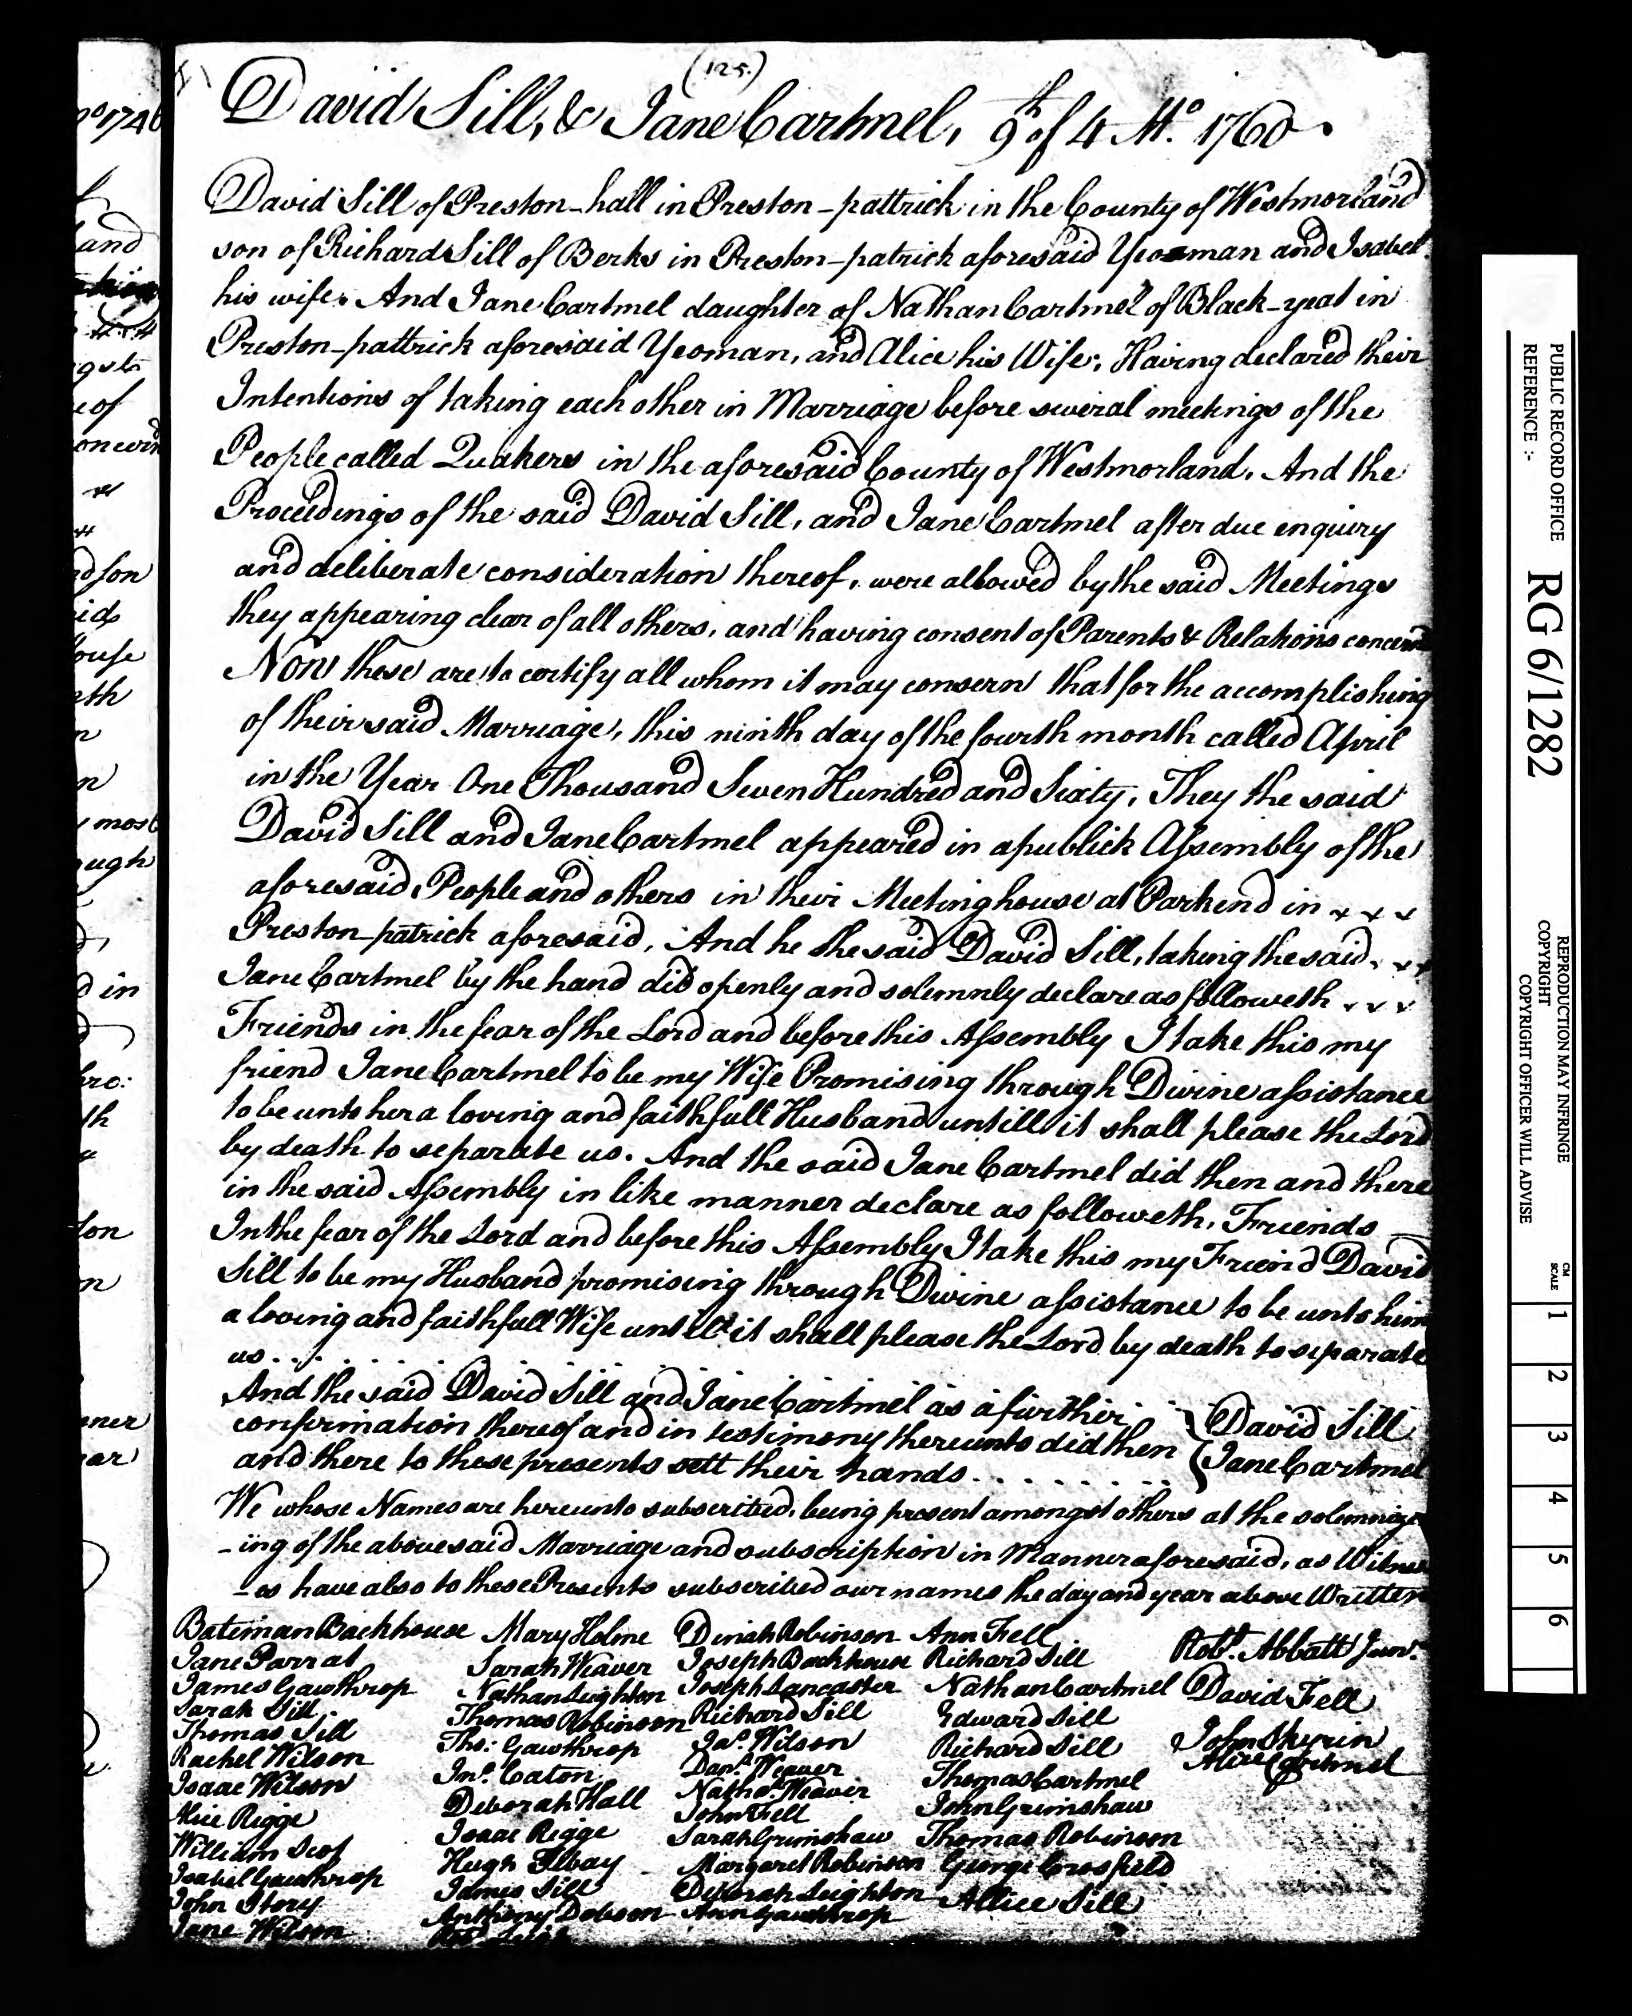 (125.)
David Sill, & Jane Cartmel, 9th of 4 Mo. 1760.
David Sill of Preston-hall in Preston-pattrick in the County of Westmorland
son of Richard Sill of Berks in Preston-patrick aforesaid Yeoman and Isabell
his wife. And Jane Cartmel daughter of Nathan Cartmel of Black-yeat in
Preston-pattrick aforesaid Yeoman, and Alice his Wife; Having declared their
Intentions of taking each other in Marriage before several meetings of the
People called Quakers in the aforesaid County of Westmorland. And the
Proceedings of the said David Sill, and Jane Cartmel after due enquiry
and deliberate consideration thereof, were allowed by the said Meetings
they appearing clear of all others, and having consent of Parents & Relations concernd
Now these are to certify all whom it may consern that for the accomplishing
of their said Marriage, this ninth day of the fourth month called April
in the Year One Thousand Seven Hundred and Sixty, They the said
David Sill and Jane Cartmel appeared in a publick Assembly of the
aforesaid People and others in their Meeting house at Parkend in
Preston-patrick aforesaid, And he the said David Sill, taking the said
Jane Cartmel by the hand did openly and solemnly declare as followeth
Friends in the fear of the Lord and before this Assembly I take this my
friend Jane Cartmel to be my Wife Promising through Divine assistance
to be unto her a loving and faithfull Husband untill it shall please the Lord
by death to separate us. And the said Jane Cartmel did then and there
in the said Assembly in like manner declare as followeth, Friends
In the fear of the Lord and before this Assembly I take this my Friend David
Sill to be my Husband promising through Divine assistance to be unto him
a loving and faithfull Wife untill it shall please the Lord by death to separate
us . . . . . . . .
And the said David Sill and Jane Cartmel as a further
confirmation thereof and in testimony thereunto did then
and there to these presents sett their hands . . . . . . . .
David Sill
Jane Cartmel
We whose Names are hereunto subscribed, being present amongst others at the solemniz
-ing of the abovesaid Marriage and subscription in Manner aforesaid, as Witness
-es have also to these Presents subscribed our names the day and year above Written
Bateman Backhouse
Jane Parrat
James Gawthrop
Sarah Sill
Thomas Sill
Rachel Wilson
Isaac Wilson
Alice Rigge
William Scot
Isabel Gawthrop
John Story
Jane Wilson
Mary Holme
Sarah Weaver
Nathan Leighton
Thomas Robinson
Tho: Gawthrop
Jno. Caton
Deborah Hall
Isaac Rigge
Hugh
James Sill
Anthony Dobson
Dinah Robinson
Joseph Backhouse
Joseph Lancaster
Richard Sill
Ja. Wilson
Danl. Weaver
Nathal. Weaver
John Fell
Sarah Grimshaw
Margaret Robinson
Deborah Leighton
Ann Gawthrop
Ann Fell
Richard Sill
Nathan Cartmel
Edward Sill
Richard Sill
Thomas Cartmel
John Grimshaw
Thomas Robinson
George Crosfield
Allice Sill
Robt. Abbatt Junr.
David Fell
John Skyrin
Alice Cartmel
PUBLIC RECORD OFFICE
REFERENCE :-
RG 6/1282
REPRODUCTION MAY INFRINGE
COPYRIGHT
COPYRIGHT OFFICER WILL ADVISE
CM
SCALE
1
2
3
4
5
6